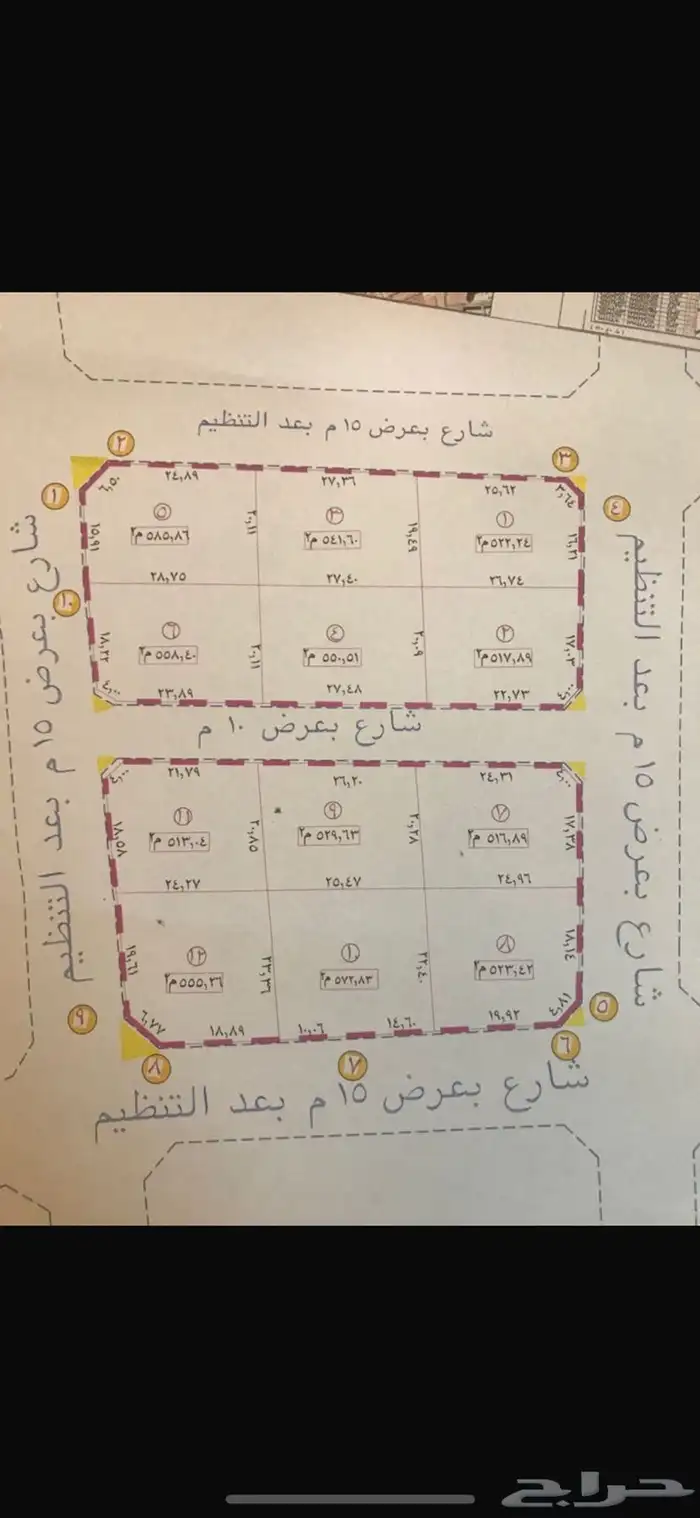 شارع بعرض ١٥ م بعد التنظيم
٢
٣
١
٤
٢٤,٨٩
٢٧,٣٦
٢٥,٦٢
٦,٥٠
٣,٦٤
٥
٣
١
٥٨٥,٨٦ م٢
٥٤١,٦٠ م٢
٥٢٢,٢٤ م٢
١٥,٩١
٢٠,١١
١٩,٤٩
١٦,٢١
٢٨,٧٥
٢٧,٤٠
٢٦,٧٤
١٠
٦
٤
٢
٥٥٨,٤٠ م٢
٥٥٠,٥١ م٢
٥١٧,٨٩ م٢
١٨,٢٢
٢٠,١١
٢٠,٠٩
١٧,٠٣
٤,٠٠
٢٣,٨٩
٢٧,٤٨
٢٢,٧٣
٤,٠٠
شارع بعرض ١٠ م
شارع بعرض ١٥ م بعد التنظيم
شارع بعرض ١٥ م بعد التنظيم
٤,٠٠
٢١,٧٩
٢٦,٢٠
٢٤,٣١
٤,٠٠
١١
٩
٧
٥١٣,٠٤ م٢
٥٢٩,٦٣ م٢
٥١٦,٨٩ م٢
١٨,٥٨
٢٠,٨٥
٢٠,٢٨
١٧,٢٨
٢٤,٢٧
٢٥,٤٧
٢٤,٩٦
١٢
١٠
٨
٥٥٥,٣٦ م٢
٥٧٢,٨٣ م٢
٥٢٣,٤٢ م٢
١٩,٦١
٢٣,٣٦
٢٢,٤٠
١٨,١٤
٦,٧٧
١٨,٨٩
١٠,٠٦
١٤,٦٠
١٩,٩٢
٩
٥
٨
٧
٦
شارع بعرض ١٥ م بعد التنظيم
حراج